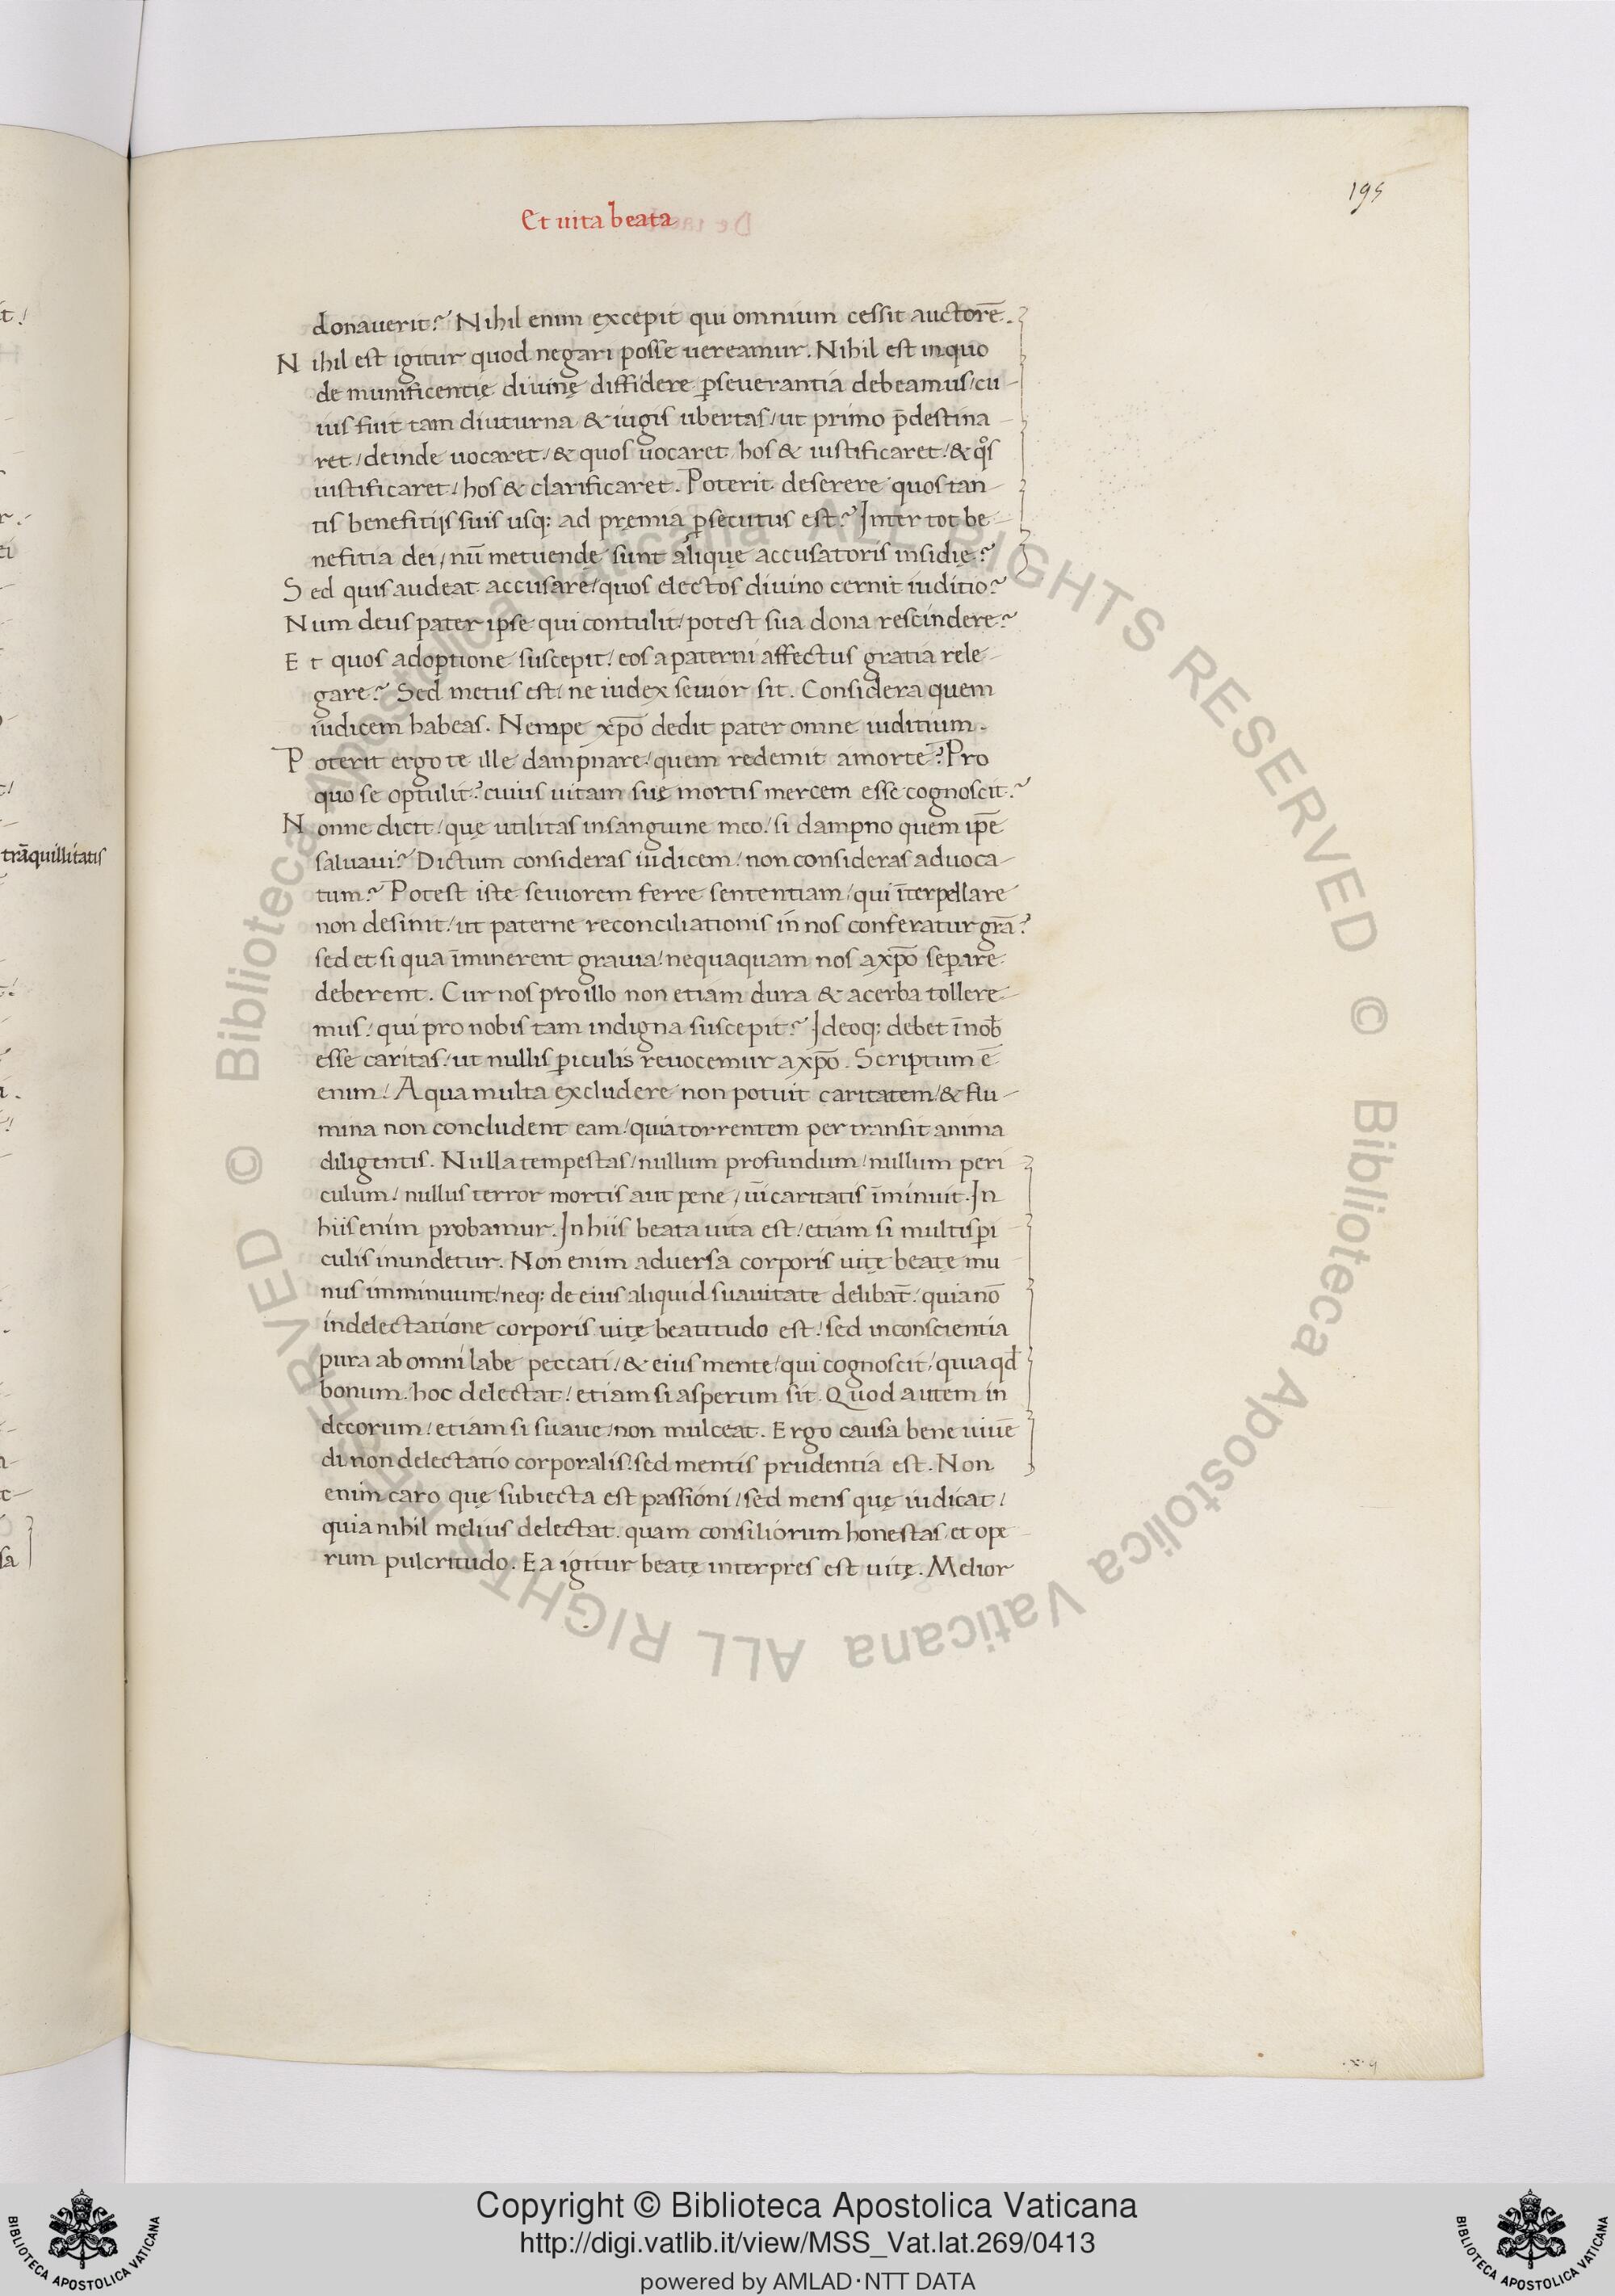 195
Et uita beata
donauerit? Nihil enim excepit qui omnium cessit auctorē.
Nihil est igitur quod negari posse uereamur. Nihil est in quo
de munificentię diuinę diffidere p̱seuerantia debeamus/ cu-
ius fuit tam diuturna & iugis ubertas/ ut primo p̄destina-
ret/ deinde uocaret/ & quos uocaret hos & iustificaret/ & qͦs
iustificaret/ hos & clarificaret. Poterit deserere quos tan-
tis benefitijs suis usq; ad pręmia p̱secutus est? Inter tot be-
nefitia dei/ nū metuendę sunt aliquę accusatoris insidię?
Sed quis audeat accusare/ quos electos diuino cernit iuditio?
Num deus pater ipse qui contulit/ potest sua dona rescindere?
Et quos adoptione suscepit/ eos a paterni affectus gratia rele-
gare? Sed metus est/ ne iudex seuior sit. Considera quem
iudicem habeas. Nempe xp̄o dedit pater omne iuditium.
Poterit ergo te ille dampnare/ quem redemit a morte? Pro
quo se optulit? cuius uitam suę mortis mercem esse cognoscit?
Nonne dicit/ quę utilitas in sanguine meo/ si dampno quem ip̄e
saluaui? Dictum consideras iudicem/ non consideras aduoca-
tum? Potest iste seuiorem ferre sententiam/ qui īterpellare
non desinit/ ut paterne reconciliationis in nos conferatur grā?
sed et si qua īminerent grauia/ nequaquam nos a xp̄o separe
deberent. Cur nos pro illo non etiam dura & acerba tollere-
mus/ qui pro nobis tam indigna suscepit? Ideoq; debet ī nob̄
esse caritas/ ut nullis p̱iculis reuocemur a xp̄o. Scriptum ē
enim/ Aqua multa excludere non potuit caritatem/ & flu-
mina non concludent eam/ quia torrentem per transit anima
diligentis. Nulla tempestas/ nullum profundum/ nullum peri
culum/ nullus terror mortis aut pene/ uī caritatis īminuit. In
hiis enim probamur. In hiis beata uita est/ etiam si multis p̱i
culis inundetur. Non enim aduersa corporis uitę beatę mu
nus imminuunt/ neq; de eius aliquid suauitate delibāt/ quia nō
in delectatione corporis uitę beatitudo est/ sed in conscientia
pura ab omni labe peccati/ & eius mente/ qui cognoscit/ quia qd̄
bonum/ hoc delectat/ etiam si asperum sit. Quod autem in
decorum/ etiam si suaue/ non mulceat. Ergo causa bene uiuē
di non delectatio corporalis/ sed mentis prudentia est. Non
enim caro quę subiecta est passioni/ sed mens quę iudicat/
quia nihil melius delectat quam consiliorum honestas/ et ope
rum pulcritudo. Ea igitur beatę interpres est uitę. Melior
trāquillitatis
© Biblioteca Apostolica Vaticana ALL RIGHTS RESERVED © Biblioteca Apostolica Vaticana ALL RIGHTS RESERVED
Copyright © Biblioteca Apostolica Vaticana
http://digi.vatlib.it/view/MSS_Vat.lat.269/0413
powered by AMLAD·NTT DATA
BIBLIOTECA APOSTOLICA VATICANA
BIBLIOTECA APOSTOLICA VATICANA